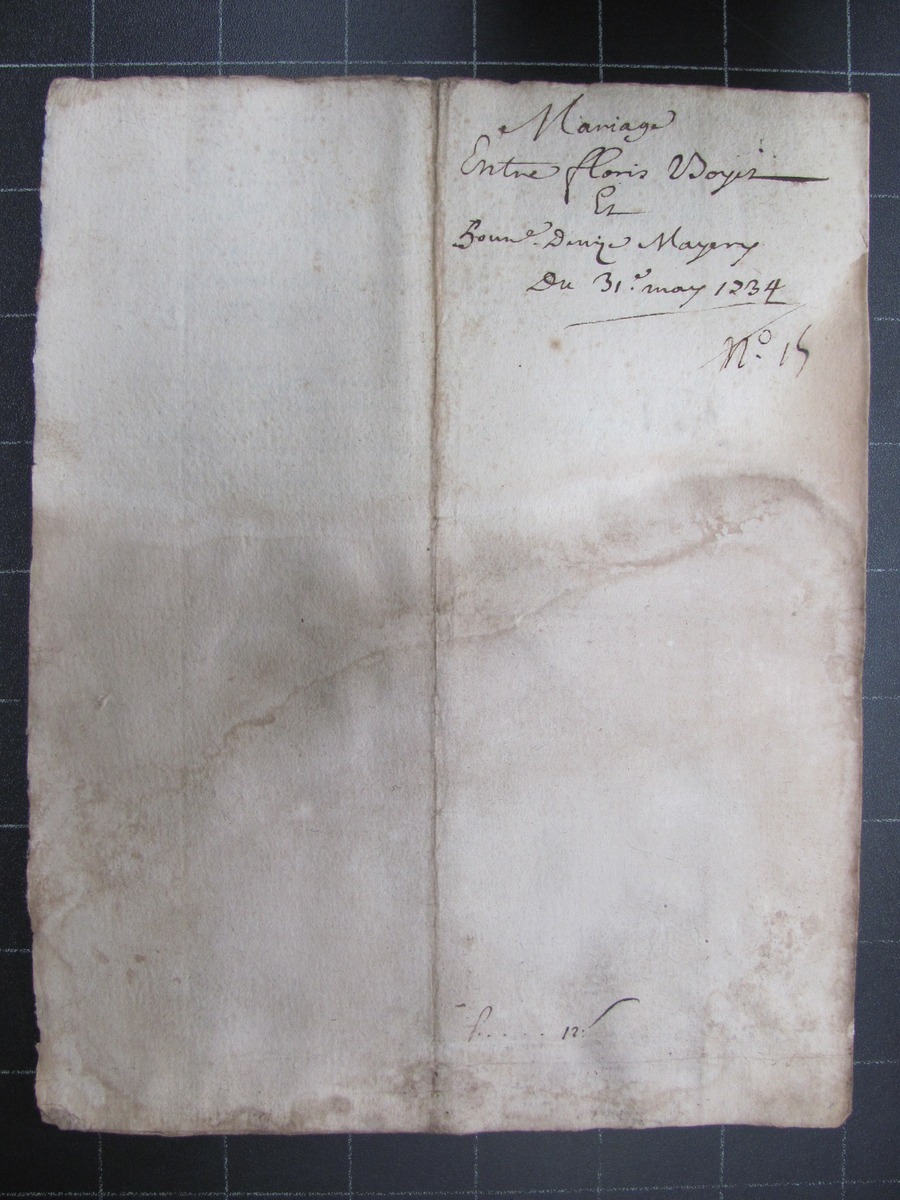 Mariage
Entre floris Boyit
Et
Honne. Denize Mayery
Du 31.e may 1734
N.o 15
P..... 12.